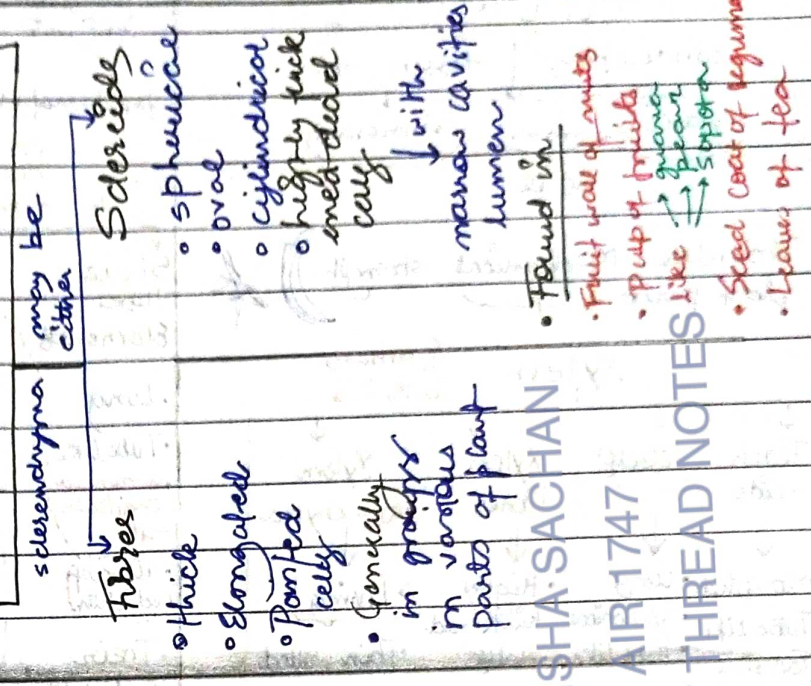 sclerenchyma may be
either
Fibres
• thick
• Elongated
• Pointed
cells
• Generally
in groups
in various
parts of plant
Sclereids
• spherical
• oval
• cylindrical
• highly thick
ened dead
cells
↓ with
narrow cavities
lumen
• Found in
• Fruit wall of nuts
• Pulp of fruits
like → guava
→ pear
→ sapota
• Seed coat of legume
• Leaves of tea
SHA SACHAN
AIR 1747
THREAD NOTES